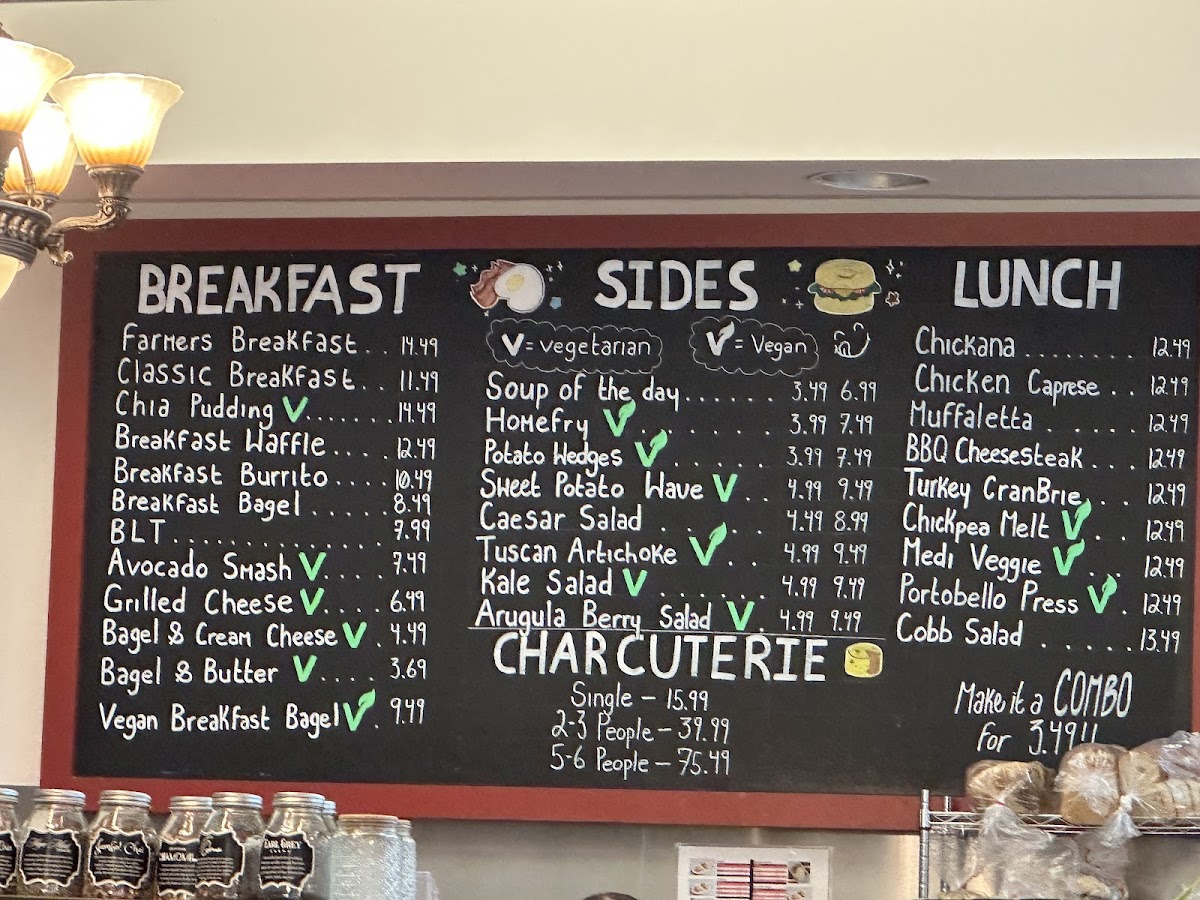 BREAKFAST
Farmers Breakfast.. 14.49
Classic Breakfast.. 11.49
Chia Pudding V...... 14.49
Breakfast Waffle.... 12.49
Breakfast Burrito.... 10.49
Breakfast Bagel...... 8.49
BLT.............. 7.99
Avocado Smash V.... 7.49
Grilled Cheese V.... 6.49
Bagel & Cream Cheese V.. 4.49
Bagel & Butter V.... 3.69
Vegan Breakfast Bagel V. 9.49
SIDES
V = vegetarian
V = Vegan
Soup of the day...... 3.49 6.99
Homefry V........ 3.99 7.49
Potato Wedges V...... 3.99 7.49
Sweet Potato Wave V.. 4.99 9.49
Caesar Salad...... 4.49 8.99
Tuscan Artichoke V.. 4.99 9.49
Kale Salad V...... 4.99 9.49
Arugula Berry Salad V. 4.99 9.49
CHARCUTERIE
Single - 15.99
2-3 People - 39.99
5-6 People - 75.49
LUNCH
Chickana........ 12.49
Chicken Caprese.. 12.49
Muffaletta...... 12.49
BBQ Cheesesteak... 12.49
Turkey CranBrie.. 12.49
Chickpea Melt V.. 12.49
Medi Veggie V... 12.49
Portobello Press V. 12.49
Cobb Salad...... 13.49
Make it a COMBO
for 3.49!!
CHAMOMIL
EARL GREY